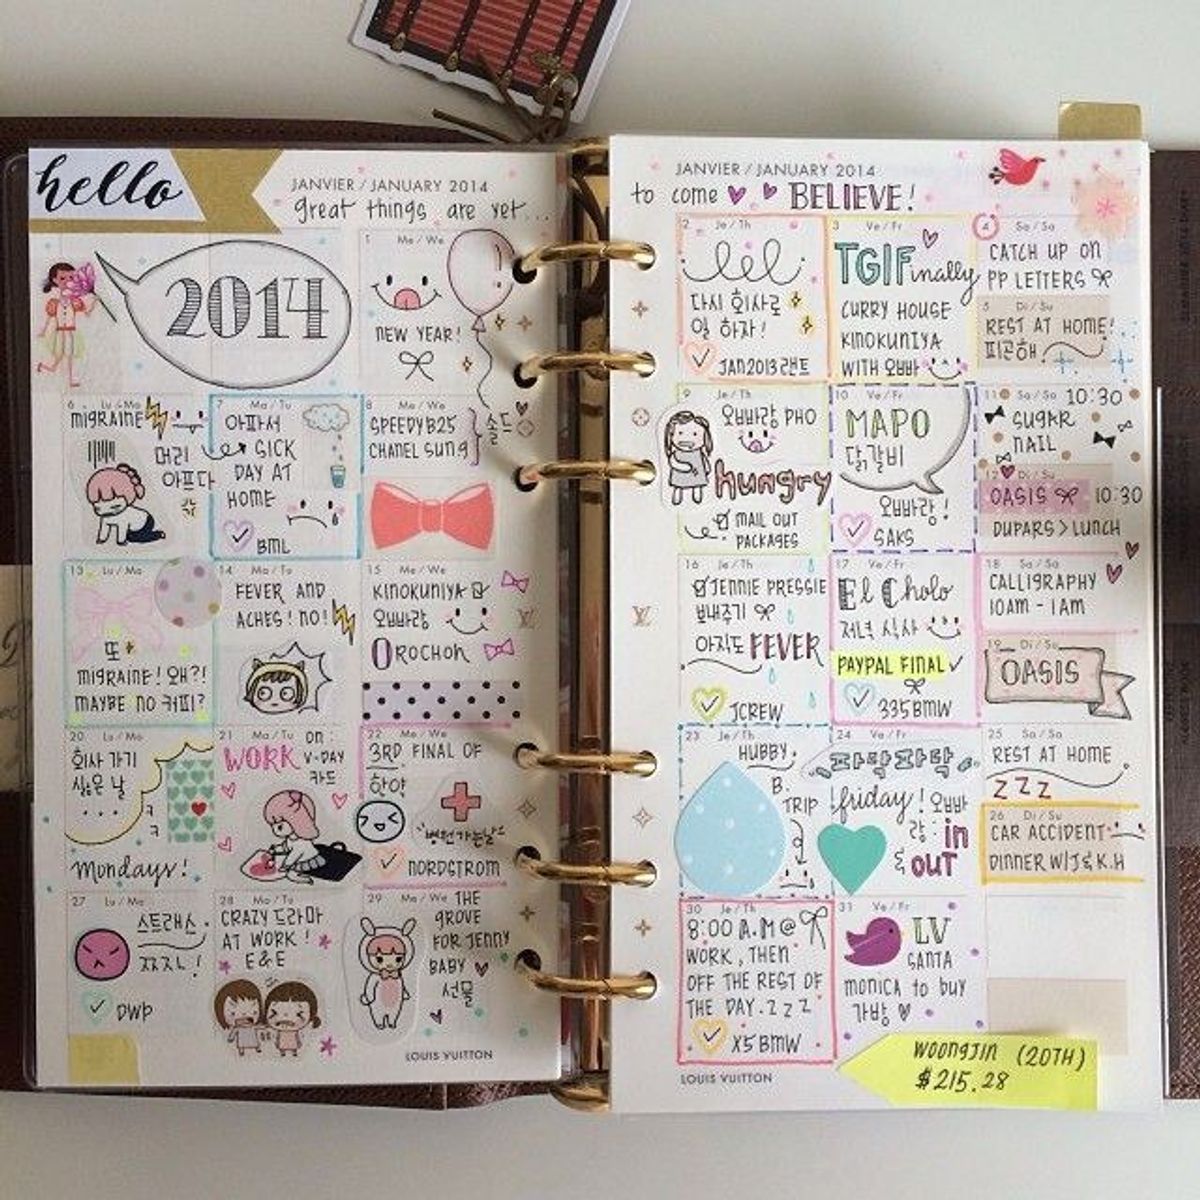 hello
JANVIER / JANUARY 2014
great things are yet...
2014
1 Me / We
NEW YEAR!
6 Lu / Mo
MIGRAINE
머리
아프다
7 Ma / Tu
아파서
SICK
DAY AT
HOME
BML
8 Me / We
SPEEDY B25
CHANEL SUNG
솔드
13 Lu / Mo
또
MIGRAINE! 왜?!
MAYBE NO 커피?
14 Ma / Tu
FEVER AND
ACHES! NO!
15 Me / We
KINOKUNIYA
오빠랑
OROCHON
20 Lu / Mo
회사 가기
싫은 날
...
ㅋ
ㅋ
Mondays!
21 Ma / Tu
WORK on:
V-DAY
카드
22 Me / We
3RD FINAL OF
병원가는날
NORDSTROM
27 Lu / Mo
스트레스
짜증나!
DWP
28 Ma / Tu
CRAZY 드라마
AT WORK!
E&E
29 Me / We
THE
GROVE
FOR JENNY
BABY
선물
LOUIS VUITTON
JANVIER / JANUARY 2014
to come BELIEVE!
2 Je / Th
다시 회사로
일 하자!
JAN2013 렌트
3 Ve / Fr
TGIFinally
CURRY HOUSE
KINOKUNIYA
WITH 오빠
4 Sa / Sa
CATCH UP ON
PP LETTERS
5 Di / Su
REST AT HOME!
피곤해.
9 Je / Th
오빠랑 PHO
hungry
MAIL OUT
PACKAGES
10 Ve / Fr
MAPO
닭갈비
오빠랑!
SAKS
11 Sa / Sa
10:30
SUGAR
NAIL
12 Di / Su
OASIS 10:30
DUPARS > LUNCH
16 Je / Th
JENNIE PRESSIE
보내주기
아직도 FEVER
JCREW
17 Ve / Fr
El Cholo
저녁 식사
PAYPAL FINAL
335BMW
18 Sa / Sa
CALLIGRAPHY
10AM - 1AM
19 Di / Su
OASIS
23 Je / Th
HUBBY
B.
TRIP
24 Ve / Fr
파닥파닥
friday! 오빠
랑:
in
& OUT
25 Sa / Sa
REST AT HOME
ZZZ
26 Di / Su
CAR ACCIDENT
DINNER W/J & K.H
30 Je / Th
8:00 A.M @
WORK, THEN
OFF THE REST OF
THE DAY. Z Z Z
X5 BMW
31 Ve / Fr
LV
SANTA
MONICA to BUY
가방
LOUIS VUITTON
WOONGJIN (20TH)
$215.28